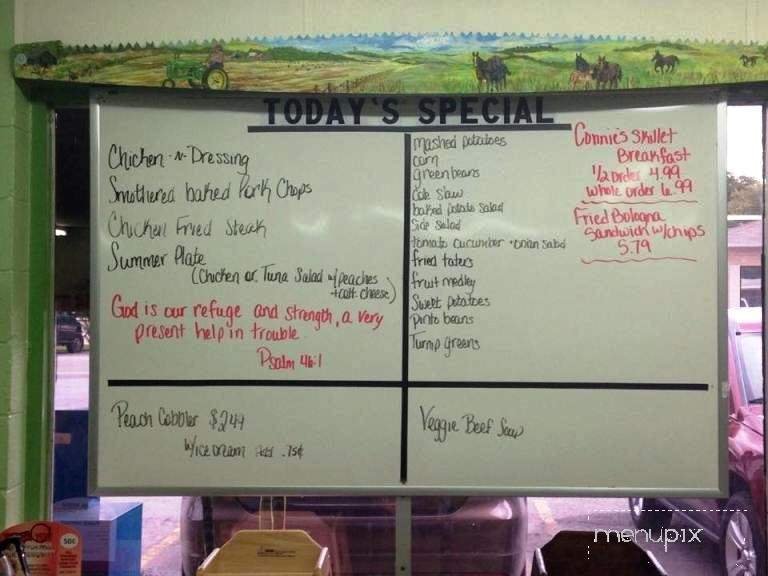 TODAY'S SPECIAL
Chicken -n- Dressing
Smothered baked Pork Chops
Chicken Fried Steak
Summer Plate
(Chicken or Tuna Salad w/peaches
+cott. cheese)
God is our refuge and strength, a very
present help in trouble.
Psalm 46:1
mashed potatoes
corn
green beans
Cole Slaw
baked potato salad
Side Salad
tomato cucumber + onion salad
fried taters
fruit medley
Sweet potatoes
Pinto beans
Turnip greens
Connie's Skillet
Breakfast
1/2 order 4.99
Whole order 6.99
Fried Bologna
Sandwich w/chips
5.79
Peach Cobbler $2.49
w/ice cream add .75¢
Veggie Beef Soup
50¢
menupix